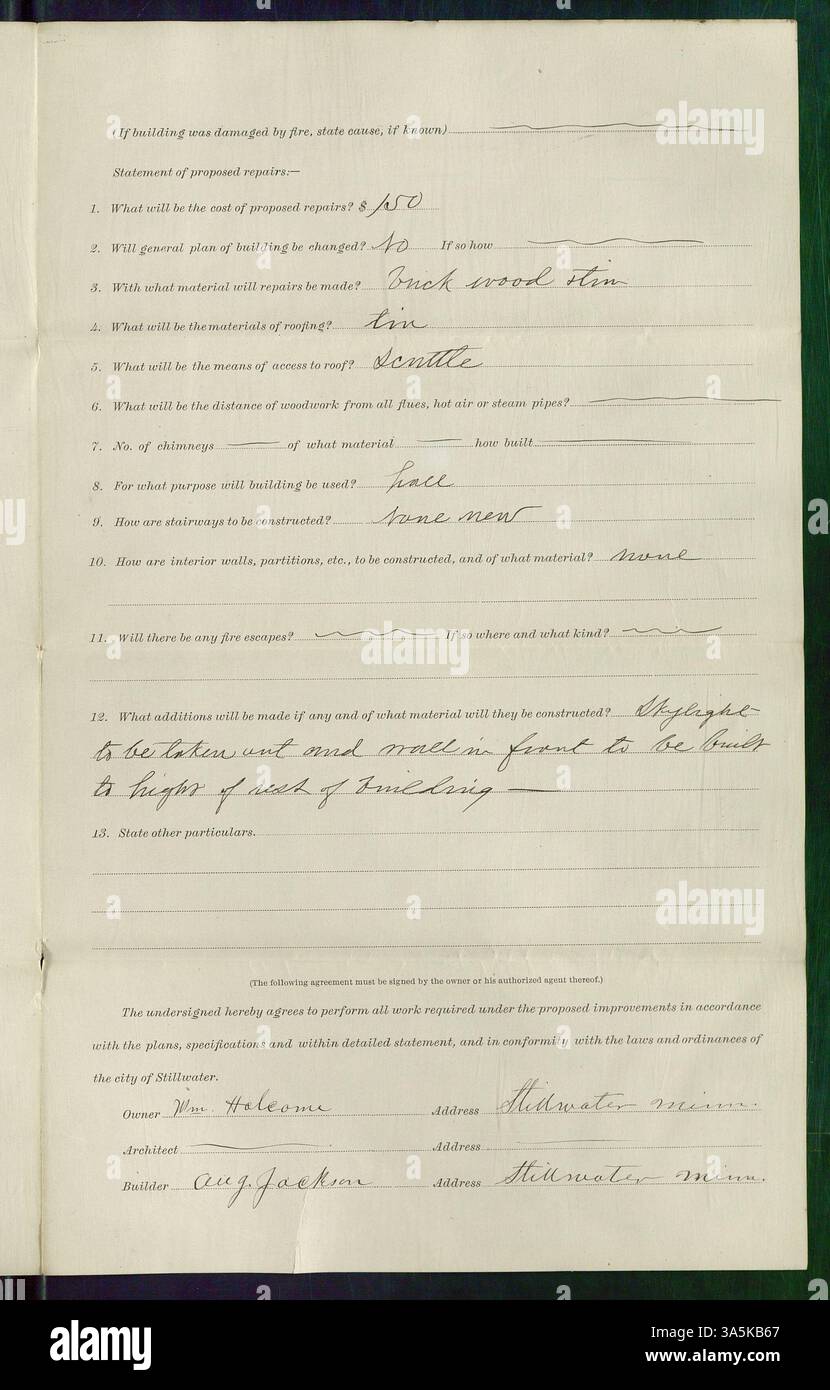 (If building was damaged by fire, state cause, if known)
Statement of proposed repairs:—
1. What will be the cost of proposed repairs? $ 150
2. Will general plan of building be changed? No If so how
3. With what material will repairs be made? brick wood
4. What will be the materials of roofing? tin
5. What will be the means of access to roof? Scuttle
6. What will be the distance of woodwork from all flues, hot air or steam pipes?
7. No. of chimneys of what material how built
8. For what purpose will building be used? hall
9. How are stairways to be constructed? none new
10. How are interior walls, partitions, etc., to be constructed, and of what material? none
11. Will there be any fire escapes? If so where and what kind?
12. What additions will be made if any and of what material will they be constructed? Skylight
to be taken out and wall in front to be built
to hight of rest of building —
13. State other particulars.
(The following agreement must be signed by the owner or his authorized agent thereof.)
The undersigned hereby agrees to perform all work required under the proposed improvements in accordance
with the plans, specifications and within detailed statement, and in conformity with the laws and ordinances of
the city of Stillwater.
Owner Wm. Holcome Address Stillwater Minn.
Architect Address
Builder Aug. Jackson Address Stillwater Minn.
alamy
alamy
alamy
alamy
Image ID: 3A5KB67
www.alamy.com